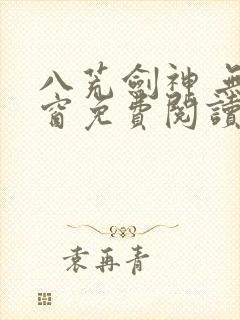 八荒劍神 無
窗免費閱讀
袁再青